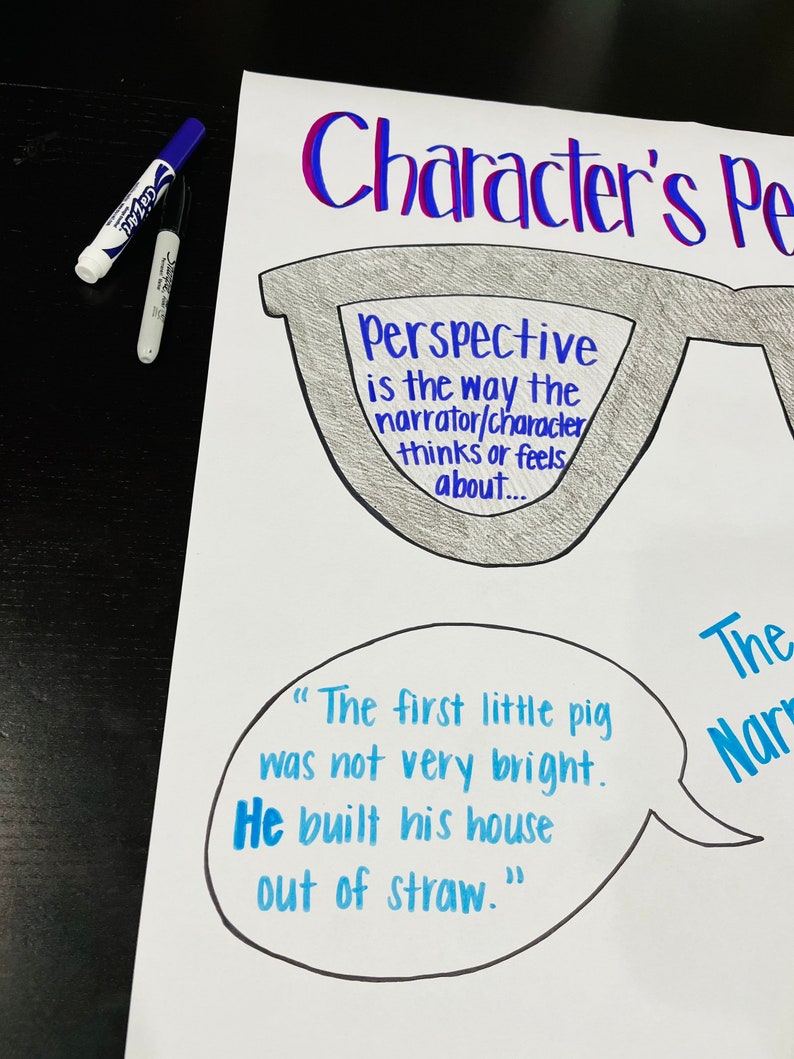 Character's Pe
Perspective
is the way the
narrator/character
thinks or feels
about...
The
Narr
"The first little pig
was not very bright.
He built his house
out of straw."
CraZArt!
Sharpie